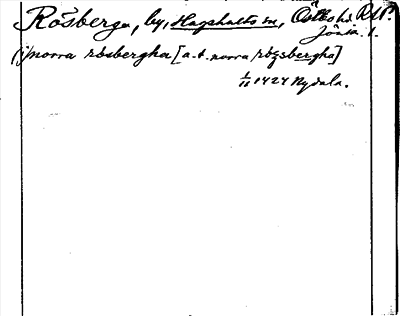 Rösberga, by, Hagshults sn, Östbo hd. RAP.
Jönk. l.
(i) norra rösbergha [a. t. norra rözsbergha]
1/11 1424 Nydala.